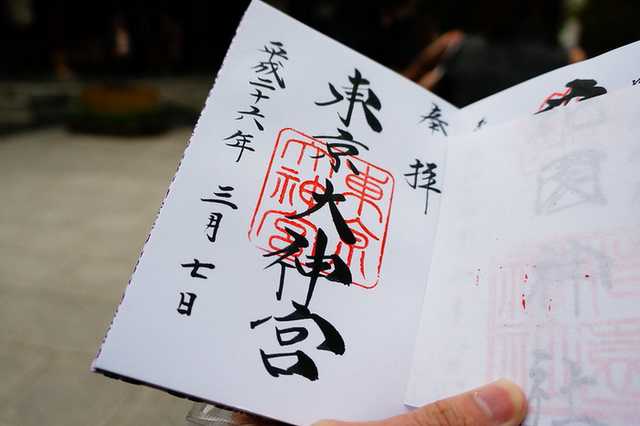 奉拝
東京大神宮
東京
大神宮
平成二十六年三月七日